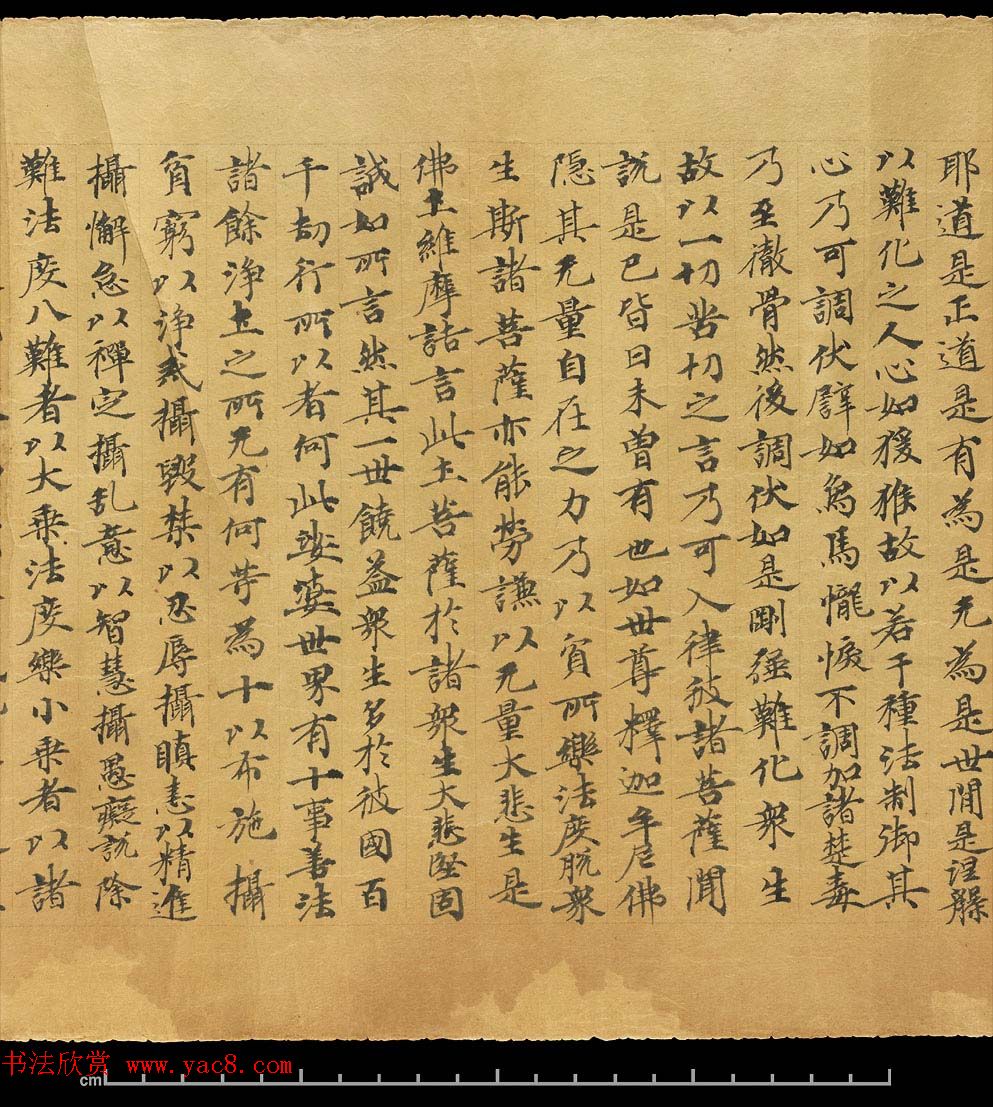 耶道是正道是有為是无為是世間是涅槃
以難化之人心如猨猴故以若干種法制御其
心乃可調伏譬如象馬𢤱悷不調加諸楚毒
乃至徹骨然後調伏如是剛強難化衆生
故以一切苦切之言乃可入律彼諸菩薩聞
說是已皆曰未曾有也如世尊釋迦牟尼佛
隱其无量自在之力乃以貧所樂法度脫衆
生斯諸菩薩亦能勞謙以无量大悲生是
佛土維摩詰言此土菩薩於諸衆生大悲堅固
誠如所言然其一世饒益衆生多於彼國百
千劫行所以者何此娑婆世界有十事善法
諸餘淨土之所无有何等為十以布施攝
貧窮以淨戒攝毀禁以忍辱攝瞋恚以精進
攝懈怠以禪定攝乱意以智慧攝愚癡說除
難法度八難者以大乘法度樂小乘者以諸
书法欣赏 www.yac8.com
cm